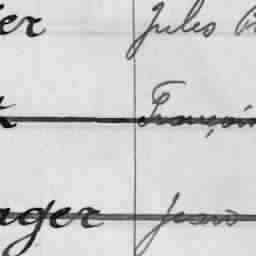 er Jules
t François
ager Jean